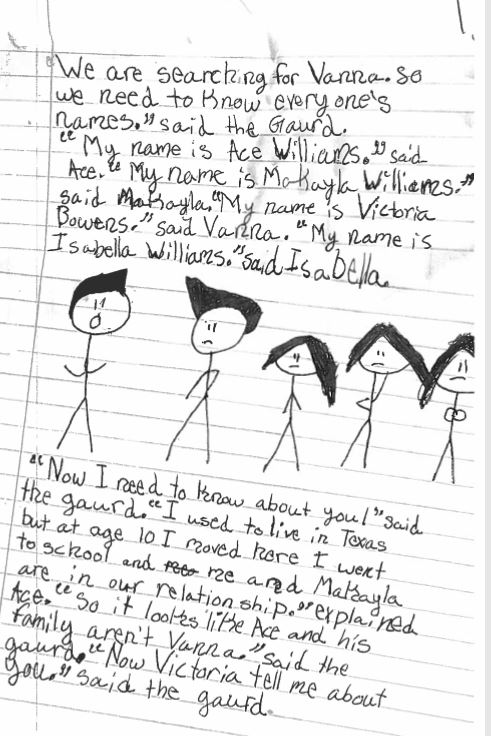 "We are searching for Vanna. So
we need to know every one's
names." said the Gaurd.
"My name is Ace Williams." said
Ace. "My name is Makayla Williams."
said Makayla. "My name is Victoria
Bowens." said Vanna. "My name is
Isabella Williams." said Isabella.
"Now I need to know about you!" said
the gaurd. "I used to live in Texas
but at age 10 I moved here I went
to school and me and Makayla
are in our relationship." explained
Ace. "So it looks like Ace and his
family aren't Vanna." said the
gaurd. "Now Victoria tell me about
you." said the gaurd.